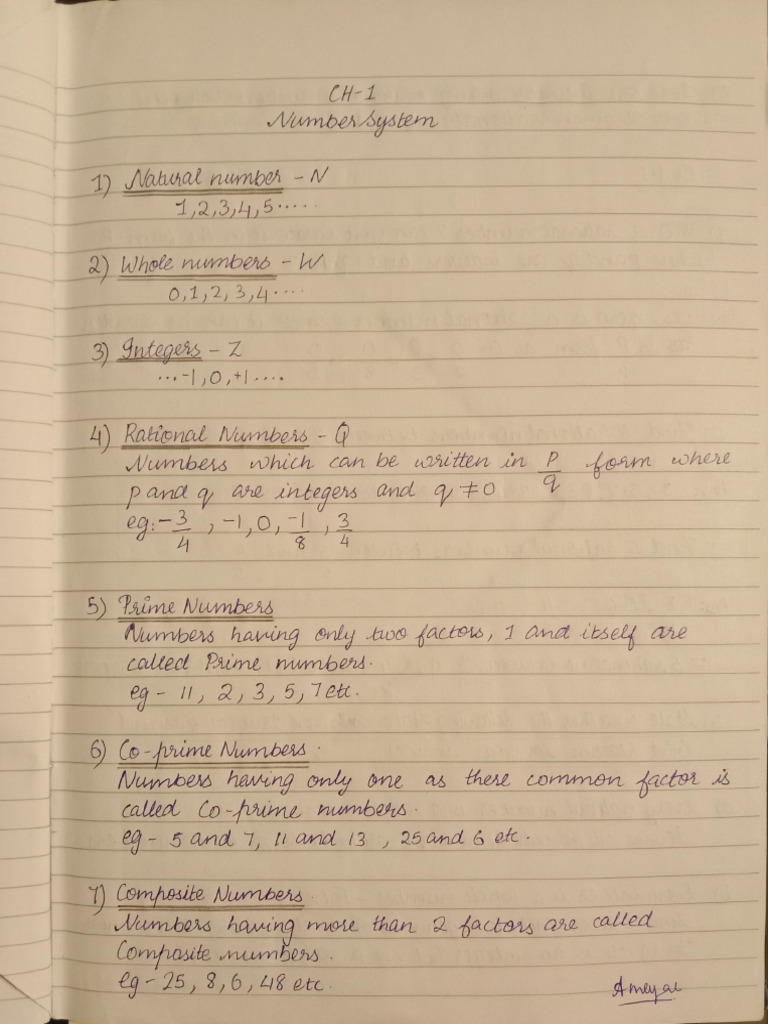 CH-1
Number System
1) Natural number - N
1,2,3,4,5.....
2) Whole numbers - W
0,1,2,3,4....
3) Integers - Z
...-1,0,+1....
4) Rational Numbers - Q
Numbers which can be written in P/q form where
p and q are integers and q ≠ 0
eg:- 3/4, -1, 0, -1/8, 3/4
5) Prime Numbers
Numbers having only two factors, 1 and itself are
called Prime numbers.
eg - 11, 2, 3, 5, 7 etc.
6) Co-prime Numbers.
Numbers having only one as there common factor is
called Co-prime numbers.
eg - 5 and 7, 11 and 13, 25 and 6 etc.
7) Composite Numbers.
Numbers having more than 2 factors are called
Composite numbers.
eg - 25, 8, 6, 48 etc.